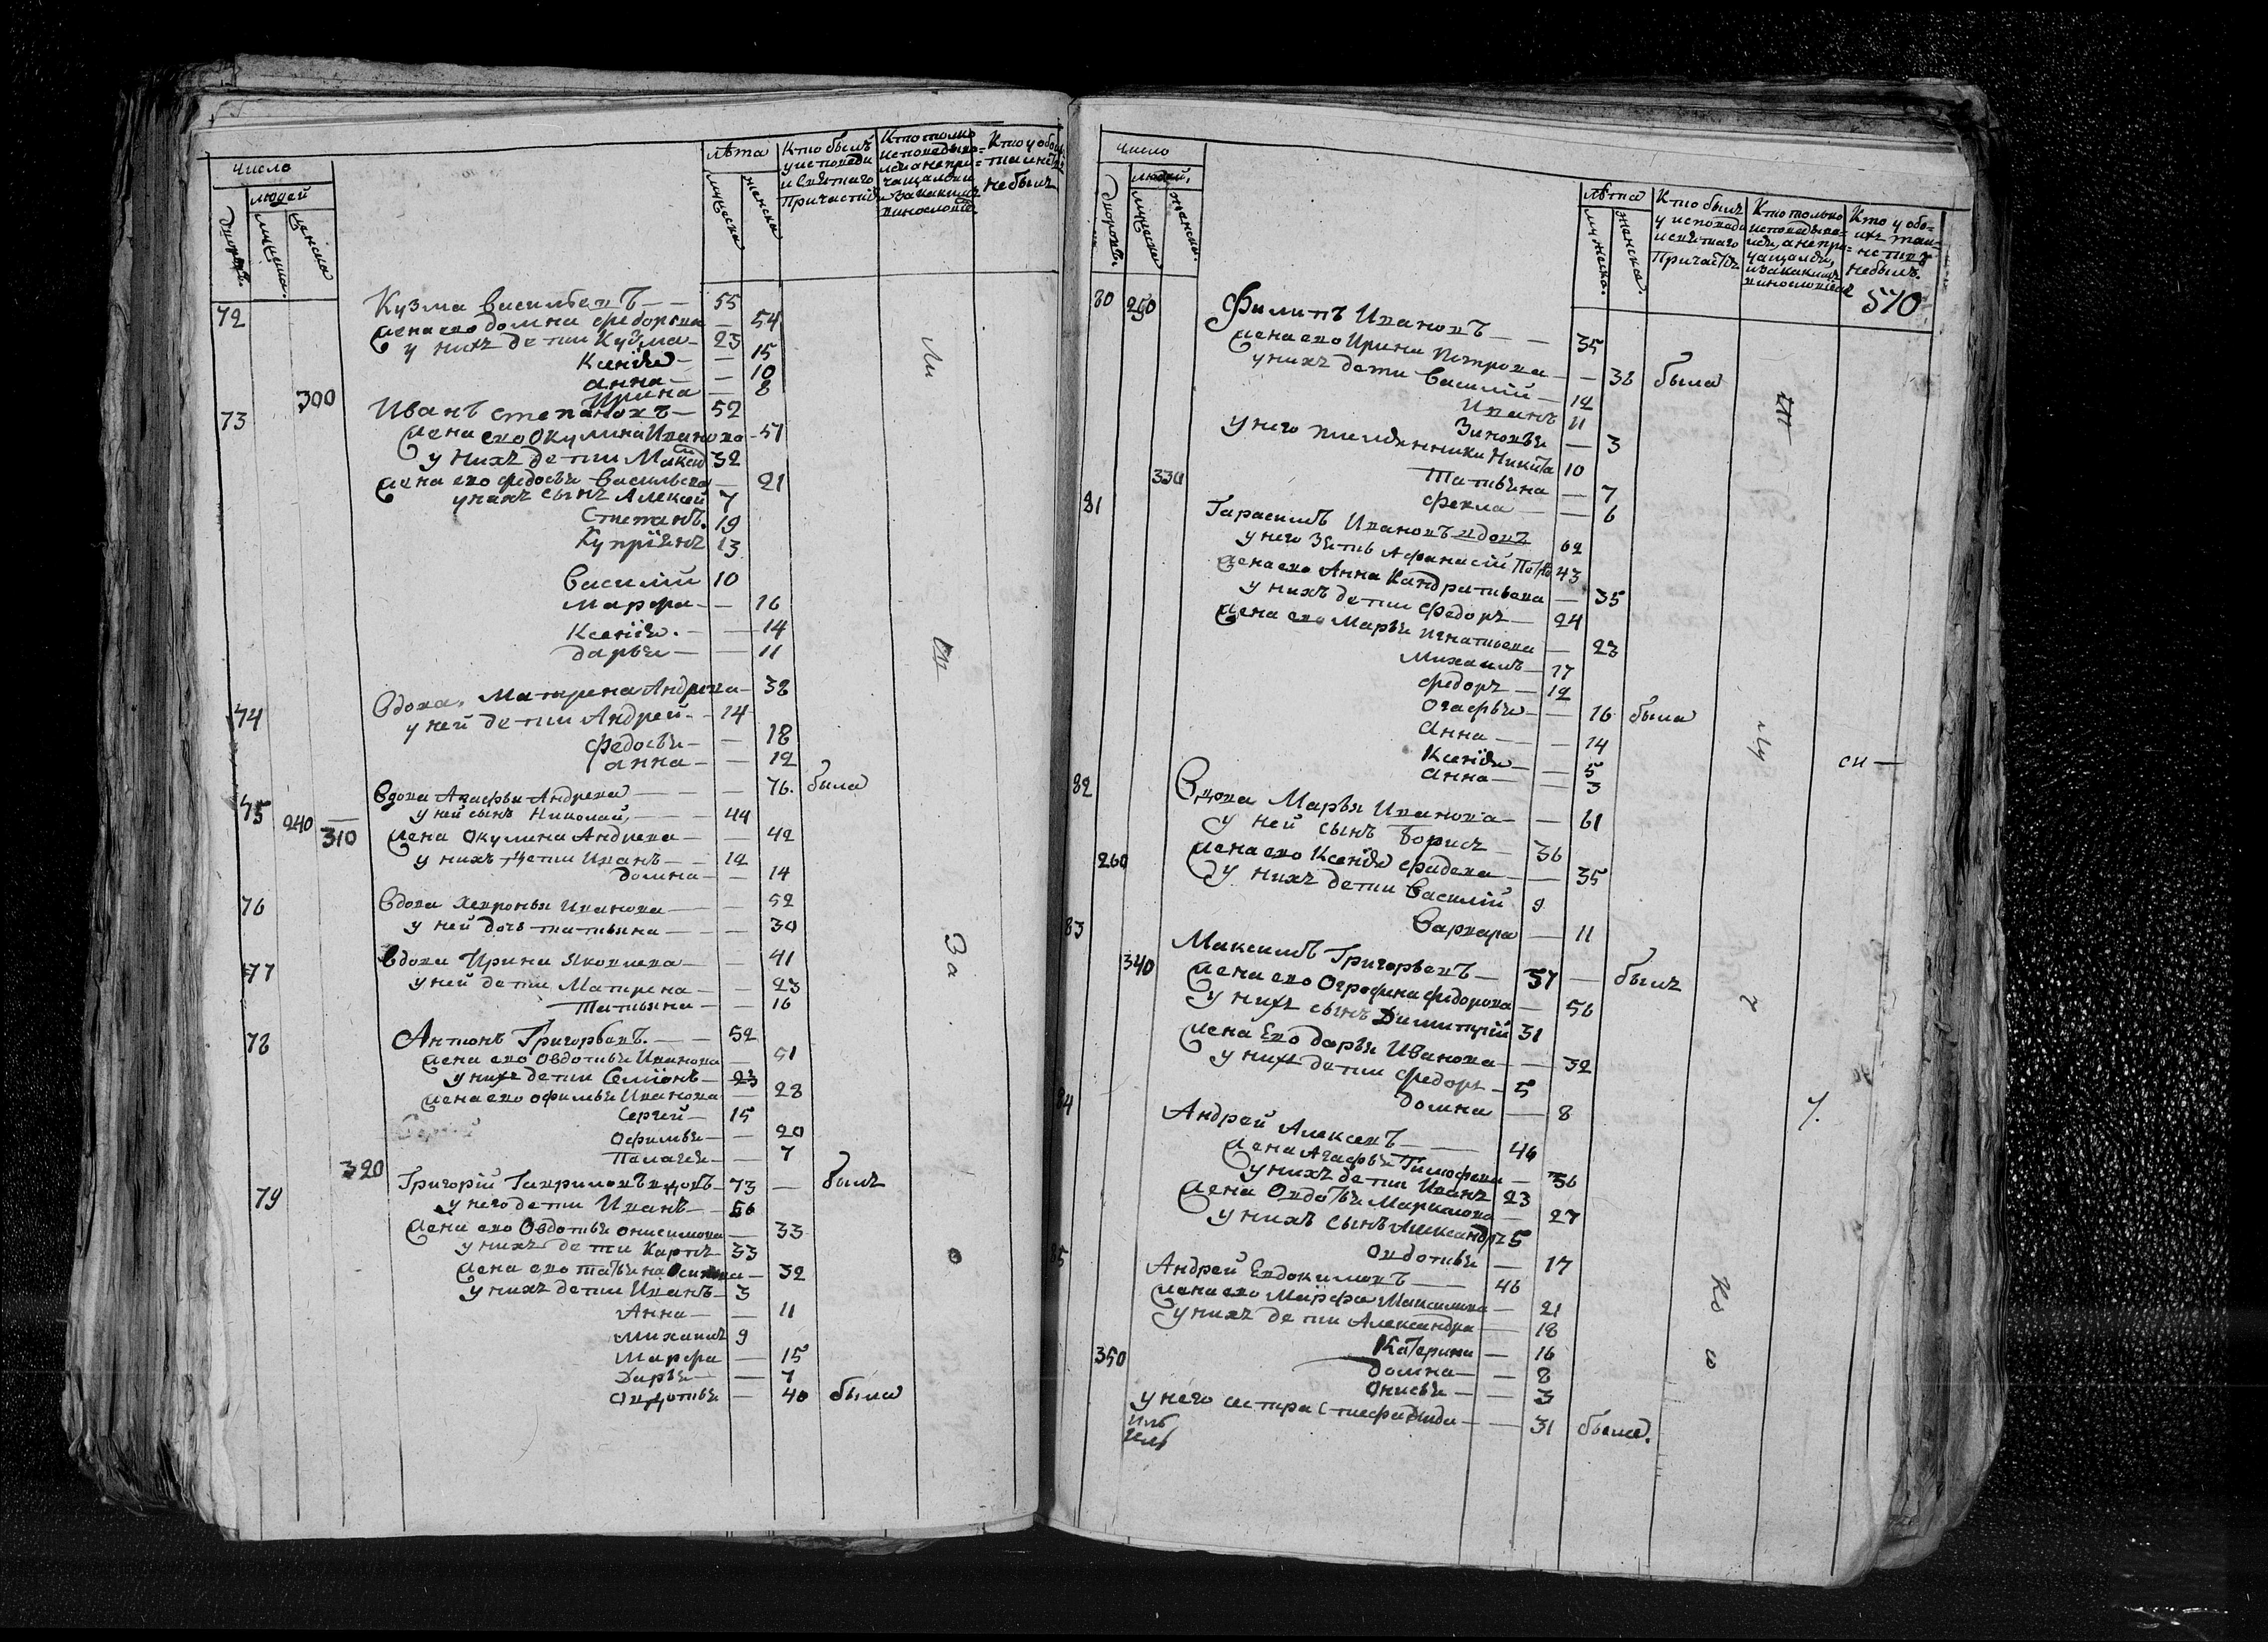 Число
людей
дворовъ.
мужеска.
женска
лѣта
мужеска
женска
Кто былъ
у исповеди
и святаго
Причастія
Кто толко
исповедыва=
лся а непри=
чащался
и за какимъ
винословиемъ
Кто у обоихъ
таинствъ
небылъ
72 Кузма Васильевъ — — 55
жена его Домна Федорова — 54
у нихъ дети Кузма — 23
Ксенія — — 15
Анна — — 10
300 Ирина — 8
73 Иванъ Степановъ — 52
жена его Окулина Иванова — 51
у нихъ дети Максимъ 32
жена его Федосья Васильева — 21
у нихъ сынъ Алексей 7
Степанъ. 19
Купріянъ 13
Василій 10
Марфа — — 16
Ксенія. — — 14
Дарья — — 11
74 Вдова Матрена Андреева — 38
у ней дети Андрей — 14
Федосья — — 18
Анна — — 12
75 Вдова Агафья Андреева — — 76. была
240 у ней сынъ Николай, — — 44
310 жена Окулина Андреева — — 42
у нихъ дети Иванъ — — 12
Домна — — 14
76 Вдова Хевронья Иванова — — 52
у ней дочь Татьяна — — 30
77 Вдова Ирина Яковлева — — 41
у ней дети Матрена — — 23
Татьяна — — 16
78 Антонъ Григорьевъ. — — 52
жена его Овдотья Иванова — 51
у нихъ дети Семіонъ — 23
жена его Офимья Иванова — 28
Сергей — 15
Офимья — — 20
Палагея — — 7
320
79 Григорій Гавриловъ вдовъ — 73 — былъ
у него дети Иванъ — 56
жена его Овдотья Онисимова — 33
у нихъ дети Карпъ 33
жена его Татьяна Осипова — 32
у нихъ дети Иванъ — 3
Анна — — 11
Михаилъ 9
Марфа — 15
Дарья — 7
Овдотья — 40 была
Ли
За
о
Число
людей,
дворовъ
мужеска
женска.
лѣта
мужеска.
женска.
Кто былъ
у исповеди
и святаго
Причастія
Кто только
исповедыва=
лся, а непри=
чащался,
и за какимъ
винословіемъ
Кто у обо=
ихъ таи=
нствъ
небылъ.
510
80 250 Филипъ Ивановъ — — 35
жена его Ирина Петрова — — 38 была
у нихъ дети Василій — 12
Иванъ 11
Зиновья — 3
у него племянники Никита 10
330 Татьяна — 7
Фекла — — 6
81 Гарасимъ Ивановъ вдовъ 62
у него зять Афанасій 43
жена его Анна Кандратьева — 35
у нихъ дети Федоръ — 24
жена его Марья Игнатьева — 23
Михаилъ — 17
Федоръ — 12
Огафья — — 16 была
Анна — — 14
Ксенія — — 5
Анна — — 3
82 Вдова Марья Иванова — — 61
у ней сынъ Борисъ — 36
260 жена его Ксенія Фадеева — — 35
у нихъ дети Василій 9
Варвара — 11
83 Максимъ Григорьевъ — 57 — былъ
340 жена его Огрофина Федорова — 56
у нихъ сынъ Димитрій 31
жена Его Дарья Иванова — — 32
у нихъ дети Федоръ — 5
Домна — 8
84 Андрей Алексеевъ — — 46
жена Агафья Тимофеева — 36
у нихъ дети Иванъ 23
жена Овдотья Маркилова — 27
у нихъ сынъ Александръ 5
Овдотья — 17
85 Андрей Евдокимовъ — 46
жена его Марфа Максимова — 21
у нихъ дети Александра — 18
Катерина — 16
350 Домна — — 8
Онисья — — 3
у него сестра Стефанида — — 31 была.
му
си —
у.
Ко